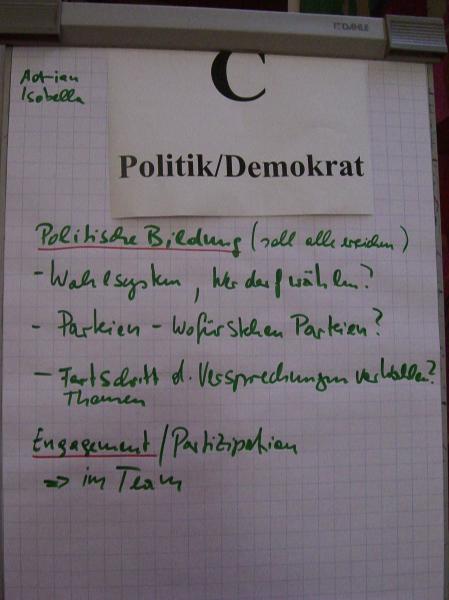 DAHLE
Adrian
Isabella
C
Politik/Demokrat
Politische Bildung (soll alle erreichen)
- Wahlsystem, Wer darf wählen?
- Parteien - Wofür stehen Parteien?
- Fortschritt d. Versprechungen
Themen
Engagement/Partizipation
=> im Team